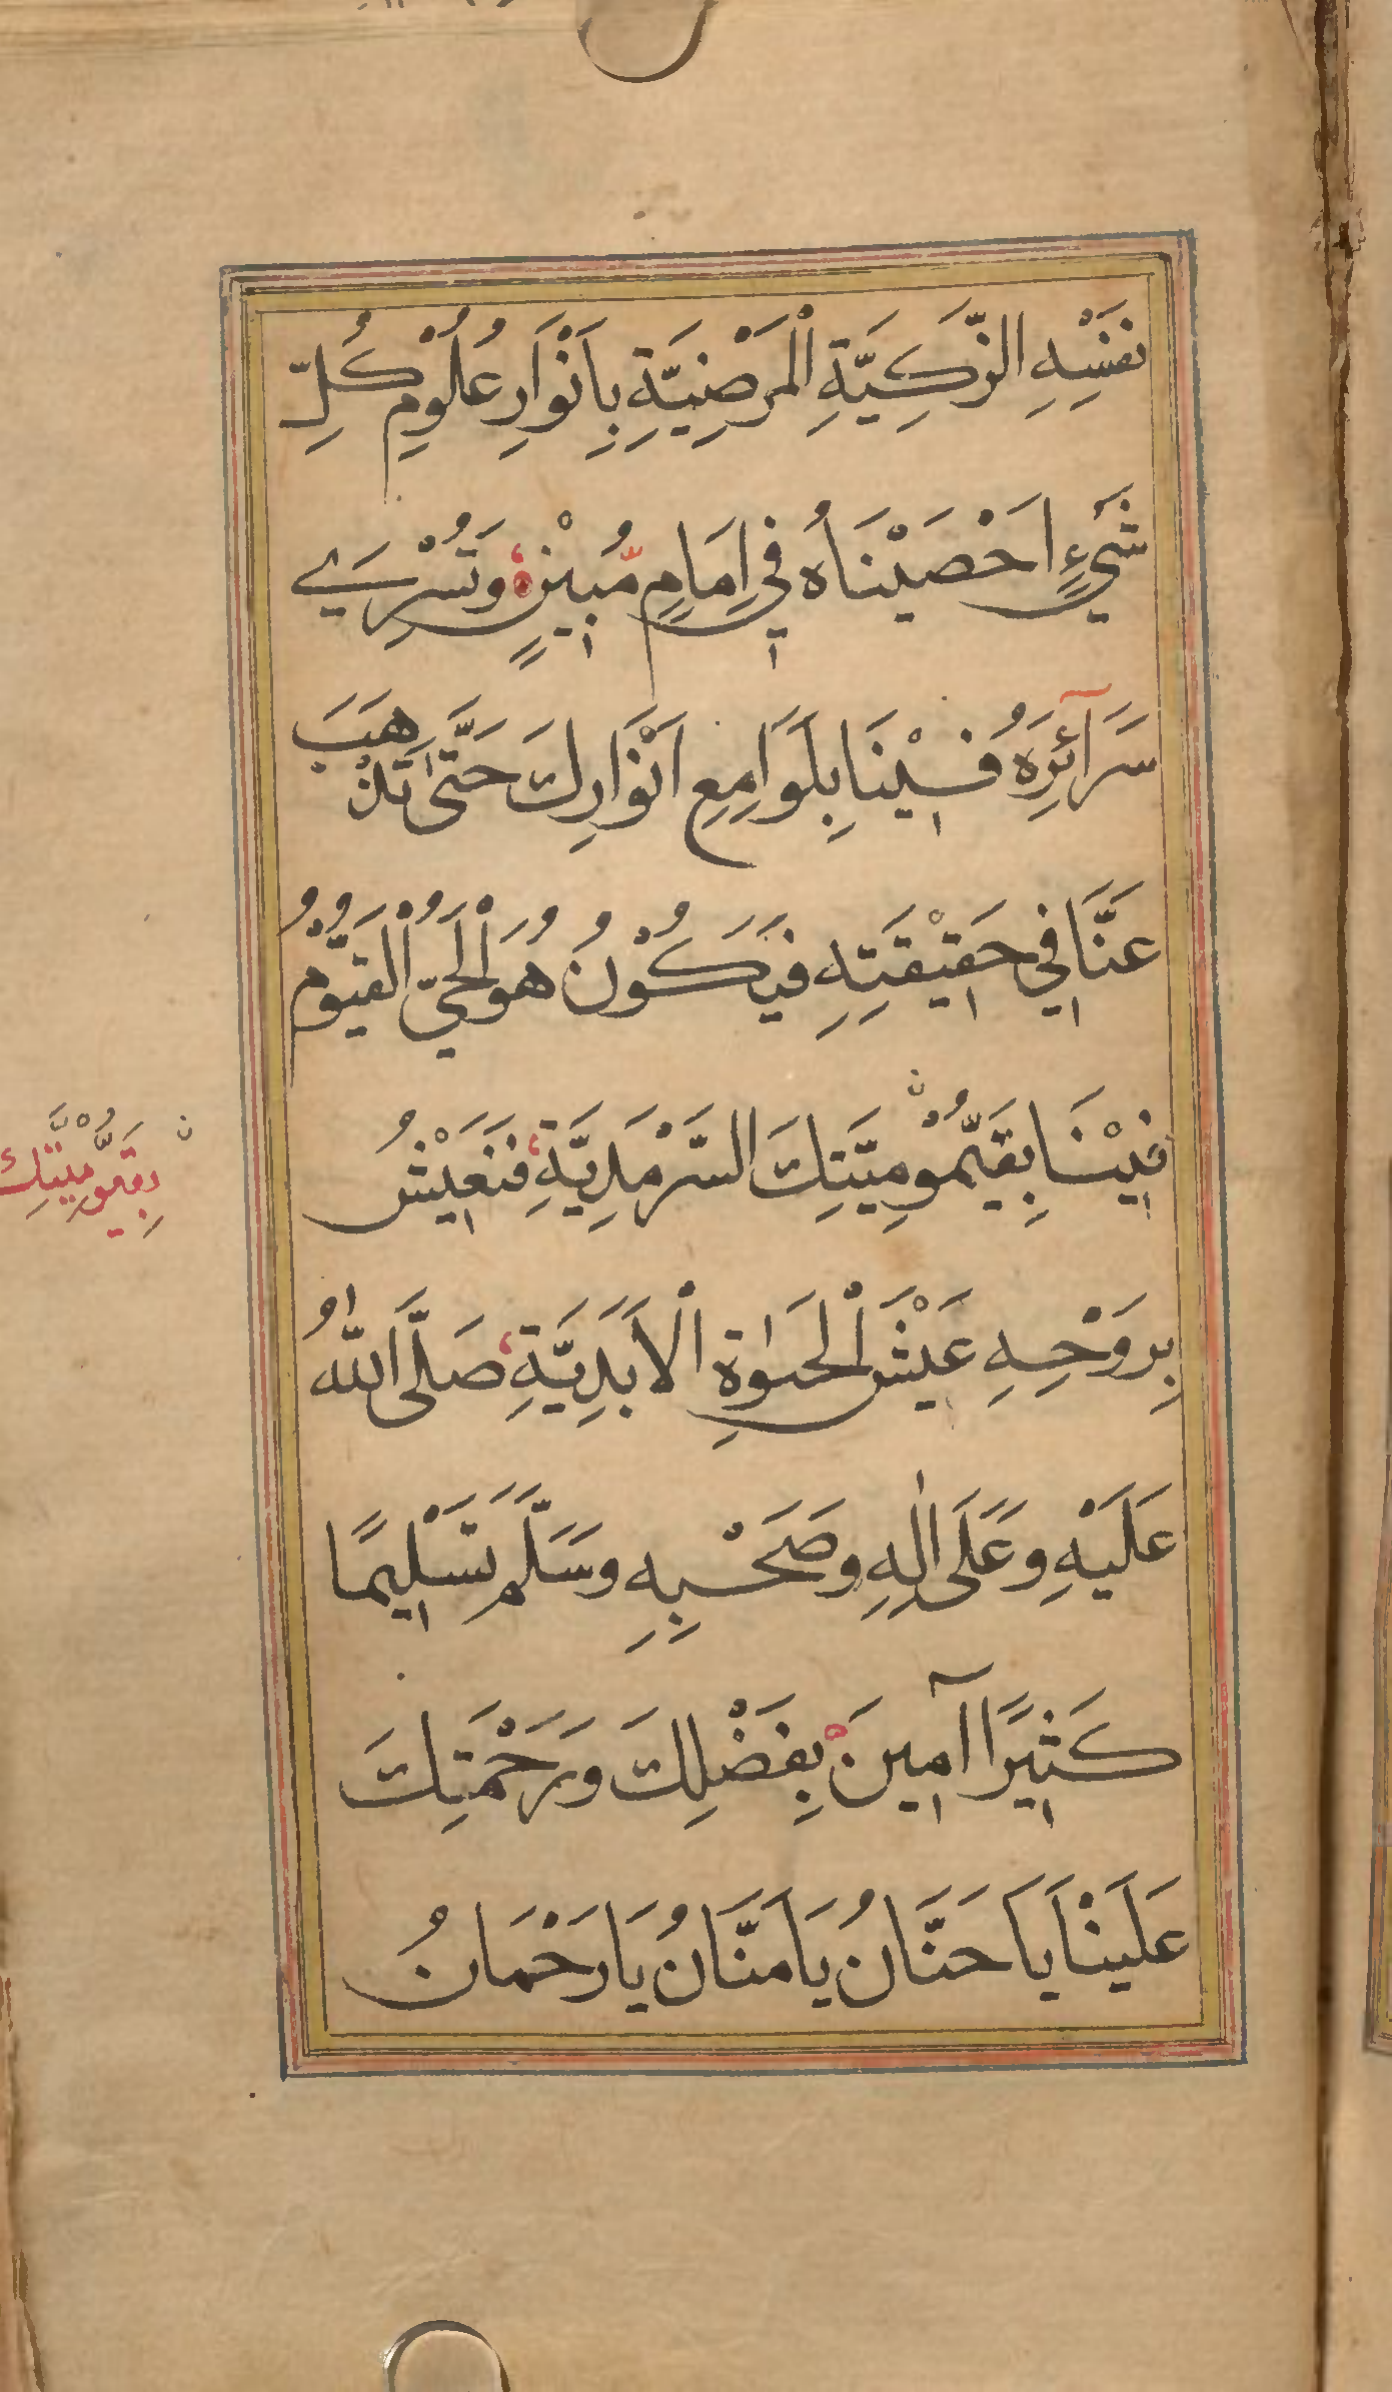 نَفْسِهِ الزَّكِيَّةِ الْمَرْضِيَّةِ بِاَنْوَارِ عُلُوْمِ كُلِّ
شَيْءٍ اَحْصَيْنَاهُ فِي اِمَامٍ مُّبِيْنٍ وَتُسْرِيَ
سَرَآئِرَهُ فِيْنَا بِلَوَامِعِ اَنْوَارِكَ حَتّٰى تَذْهَبَ
عَنَّا فِي حَقِيْقَتِهِ فَيَكُوْنُ هُوَ الْحَيُّ الْقَيُّوْمُ
فِيْنَا بِقَيُّمُوْمِيَّتِكَ السَّرْمَدِيَّةِ فَنَعِيْشُ
بِقَيُّوْمِيَّتِكَ
بِرَوْحِهِ عَيْشَ الْحَيٰوةِ الْاَبَدِيَّةِ صَلَّى اللّٰهُ
عَلَيْهِ وَعَلَى اٰلِهِ وَصَحْبِهِ وَسَلَّمَ تَسْلِيمًا
كَثِيرًا آمِينَ بِفَضْلِكَ وَرَحْمَتِكَ
عَلَيْنَا يَا حَنَّانُ يَا مَنَّانُ يَا رَحْمَانُ